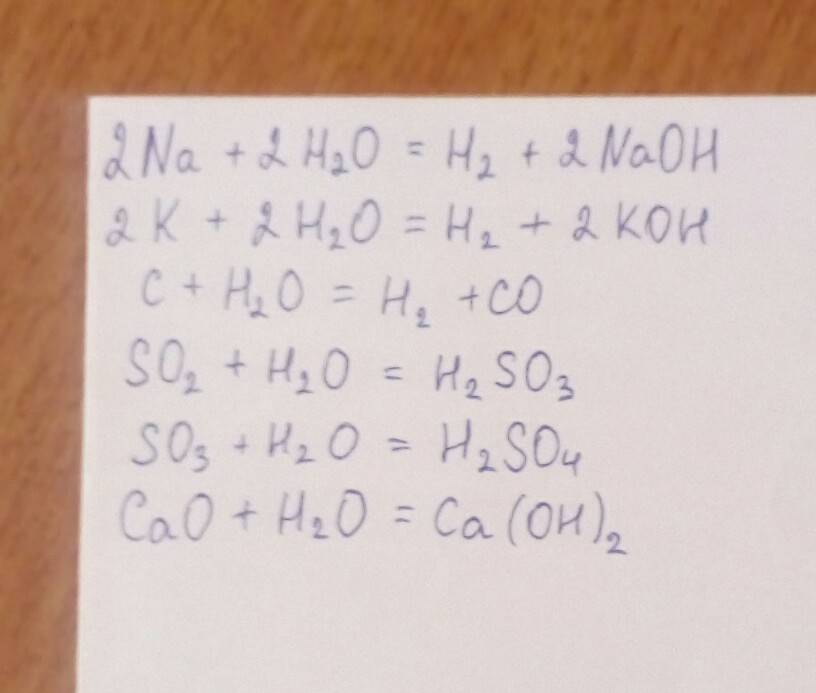 2Na + 2H₂O = H₂ + 2NaOH
2K + 2H₂O = H₂ + 2KOH
C + H₂O = H₂ + CO
SO₂ + H₂O = H₂SO₃
SO₃ + H₂O = H₂SO₄
CaO + H₂O = Ca(OH)₂